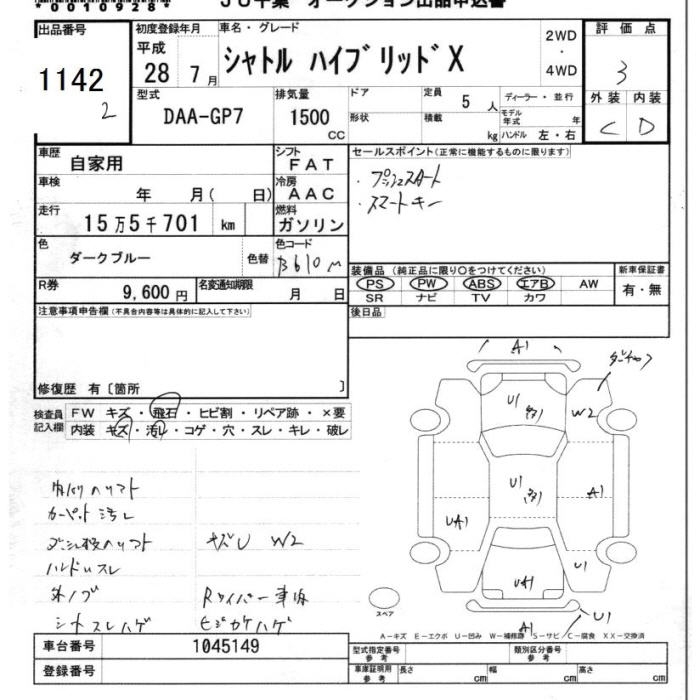 *0010928*
JU千葉 オークション出品申込書
出品番号
1142
2
初度登録年月
平成
28 7月
車名・グレード
シャトル ハイブリッドX
2WD
・
4WD
評価点
3
外装 内装
C D
型式
DAA-GP7
排気量
1500
CC
ドア
形状
定員 5 人
積載 kg
ディーラー・並行
モデル年式 年
ハンドル 左・右
車歴
自家用
シフト
FAT
車検
年 月( 日)
冷房
AAC
走行
15万5千701 km
燃料
ガソリン
色
ダークブルー
色替
色コード
B610M
R券
9,600円
名変通知期限
月 日
セールスポイント(正常に機能するものに限ります)
・プッシュスタート
・スマートキー
装備品(純正品に限り○をつけてください)
PS PW ABS エアB AW
SR ナビ TV カワ
新車保証書
有・無
後日品
注意事項申告欄(不具合内容等は具体的に記入して下さい)
修復歴 有〔箇所 〕
検査員記入欄
FW キズ・飛石・ヒビ割・リペア跡・×要
内装 キズ・汚レ・コゲ・穴・スレ・キレ・破レ
内バリヘリフト
カーペット汚レ
キズU W2
ハンドルスレ
Rワイパー車庫
シートスレハゲ
ヒジカケハゲ
A1
U1
W2
U1
A1
UA1
U1
UA1
U1
A1
スペア
A-キズ E-エクボ U-凹み W-補修跡 S-サビ C-腐食 XX-交換済
車台番号
1045149
登録番号
型式指定番号
参考
類別区分番号
参考
車庫証明用
参考
長さ cm
幅 cm
高さ cm